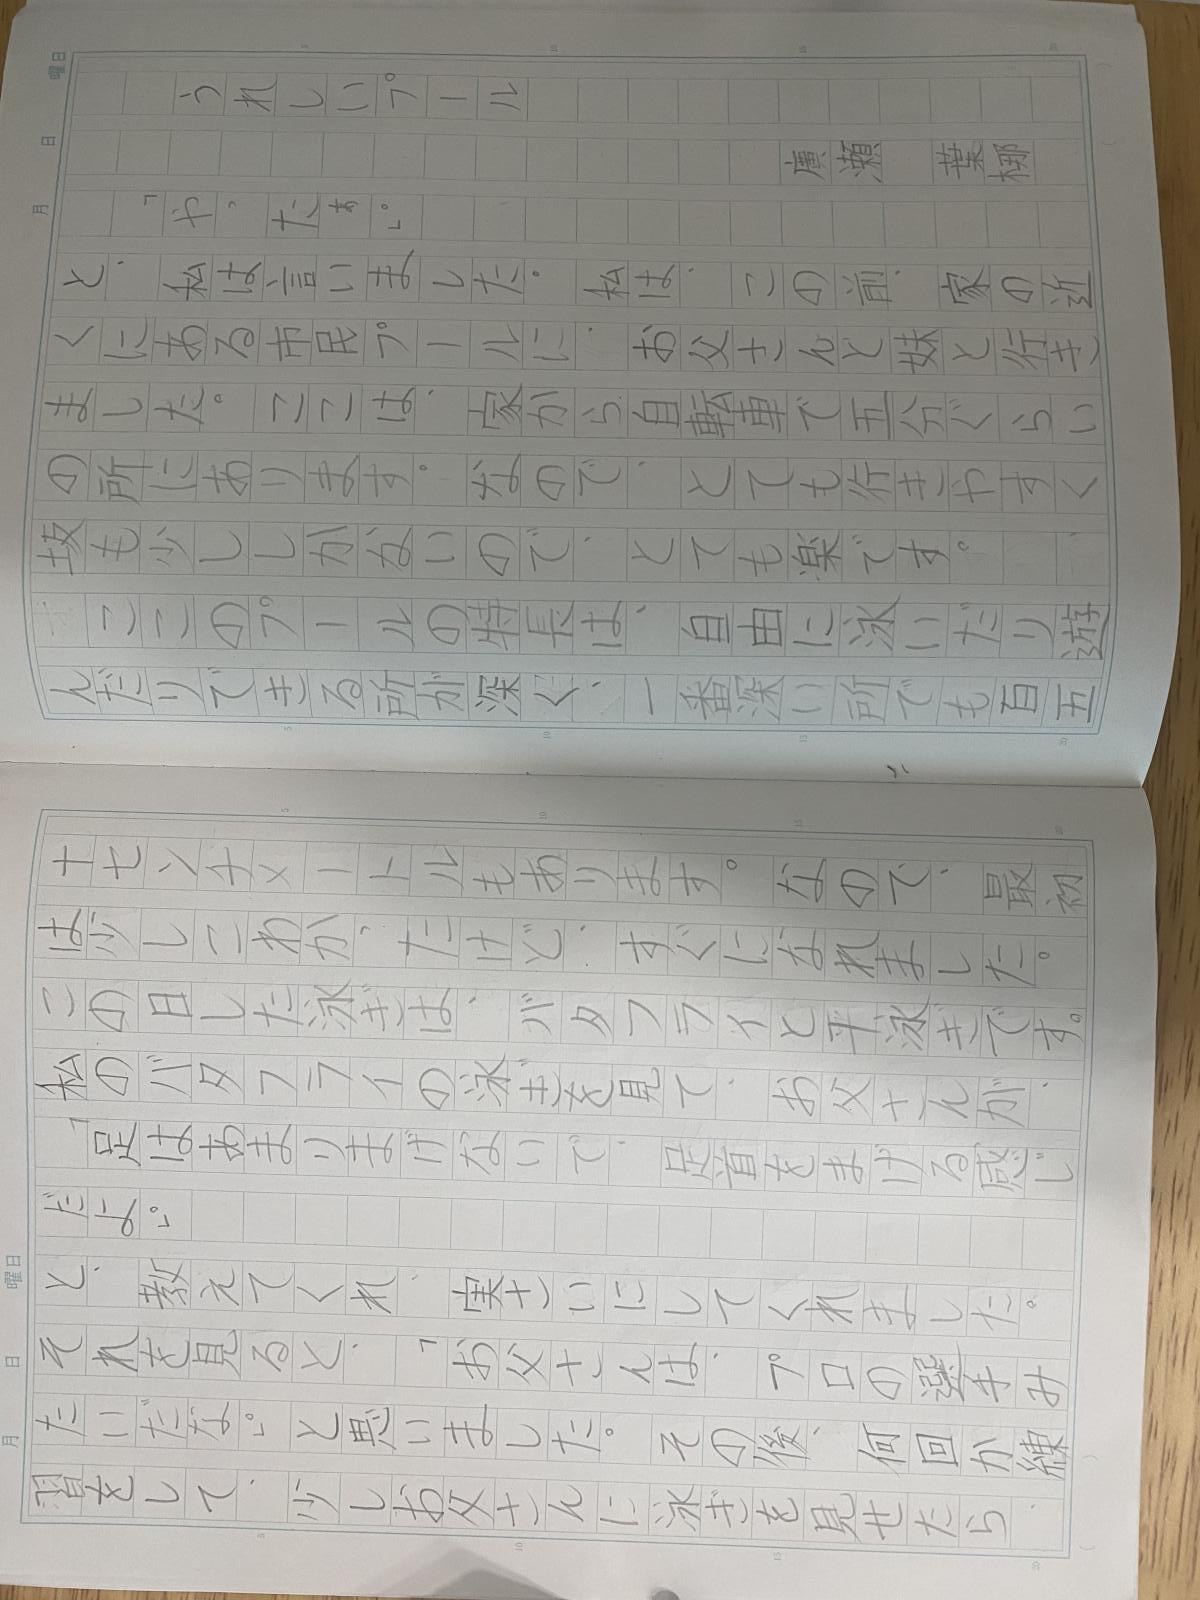 うれしいプール
廣瀬 葉梛
「やったぁ。」
と、私は言いました。私は、この前、家の近
くにある市民プールに、お父さんと妹と行き
ました。ここは、家から自転車で五分ぐらい
の所にあります。なので、とても行きやすく
坂も少ししかないので、とても楽です。
ここのプールの特長は、自由に泳いだり遊
んだりできる所が深く、一番深い所でも百五
十センチメートルもあります。なので、最初
は少しこわかったけど、すぐになれました。
この日した泳ぎは、バタフライと平泳ぎです。
私のバタフライの泳ぎを見て、お父さんが、
「足はあまりまげないで、足首をまげる感じ
だよ。」
と、教えてくれ、実さいにしてくれました。
それを見ると、「お父さんは、プロの選手み
たいだな。」と思いました。その後、何回か練
習をして、少しお父さんに泳ぎを見せたら、